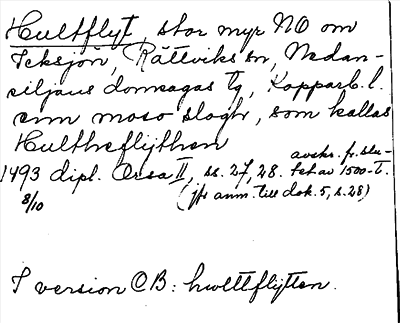 Hultflyt, stor myr NO om
Teksjön, Rättviks sn, Nedan-
siljans domsagas tg, Kopparb. l.
enn moso slogh, som kallas
Hulthreflijthen
1493 dipl. Orsa II, ss. 27, 28. avskr. fr. slu-
8/10 tet av 1500-t.
(jfr anm. till dok. 5, s. 28)
I version OB: hwlttflijtten.